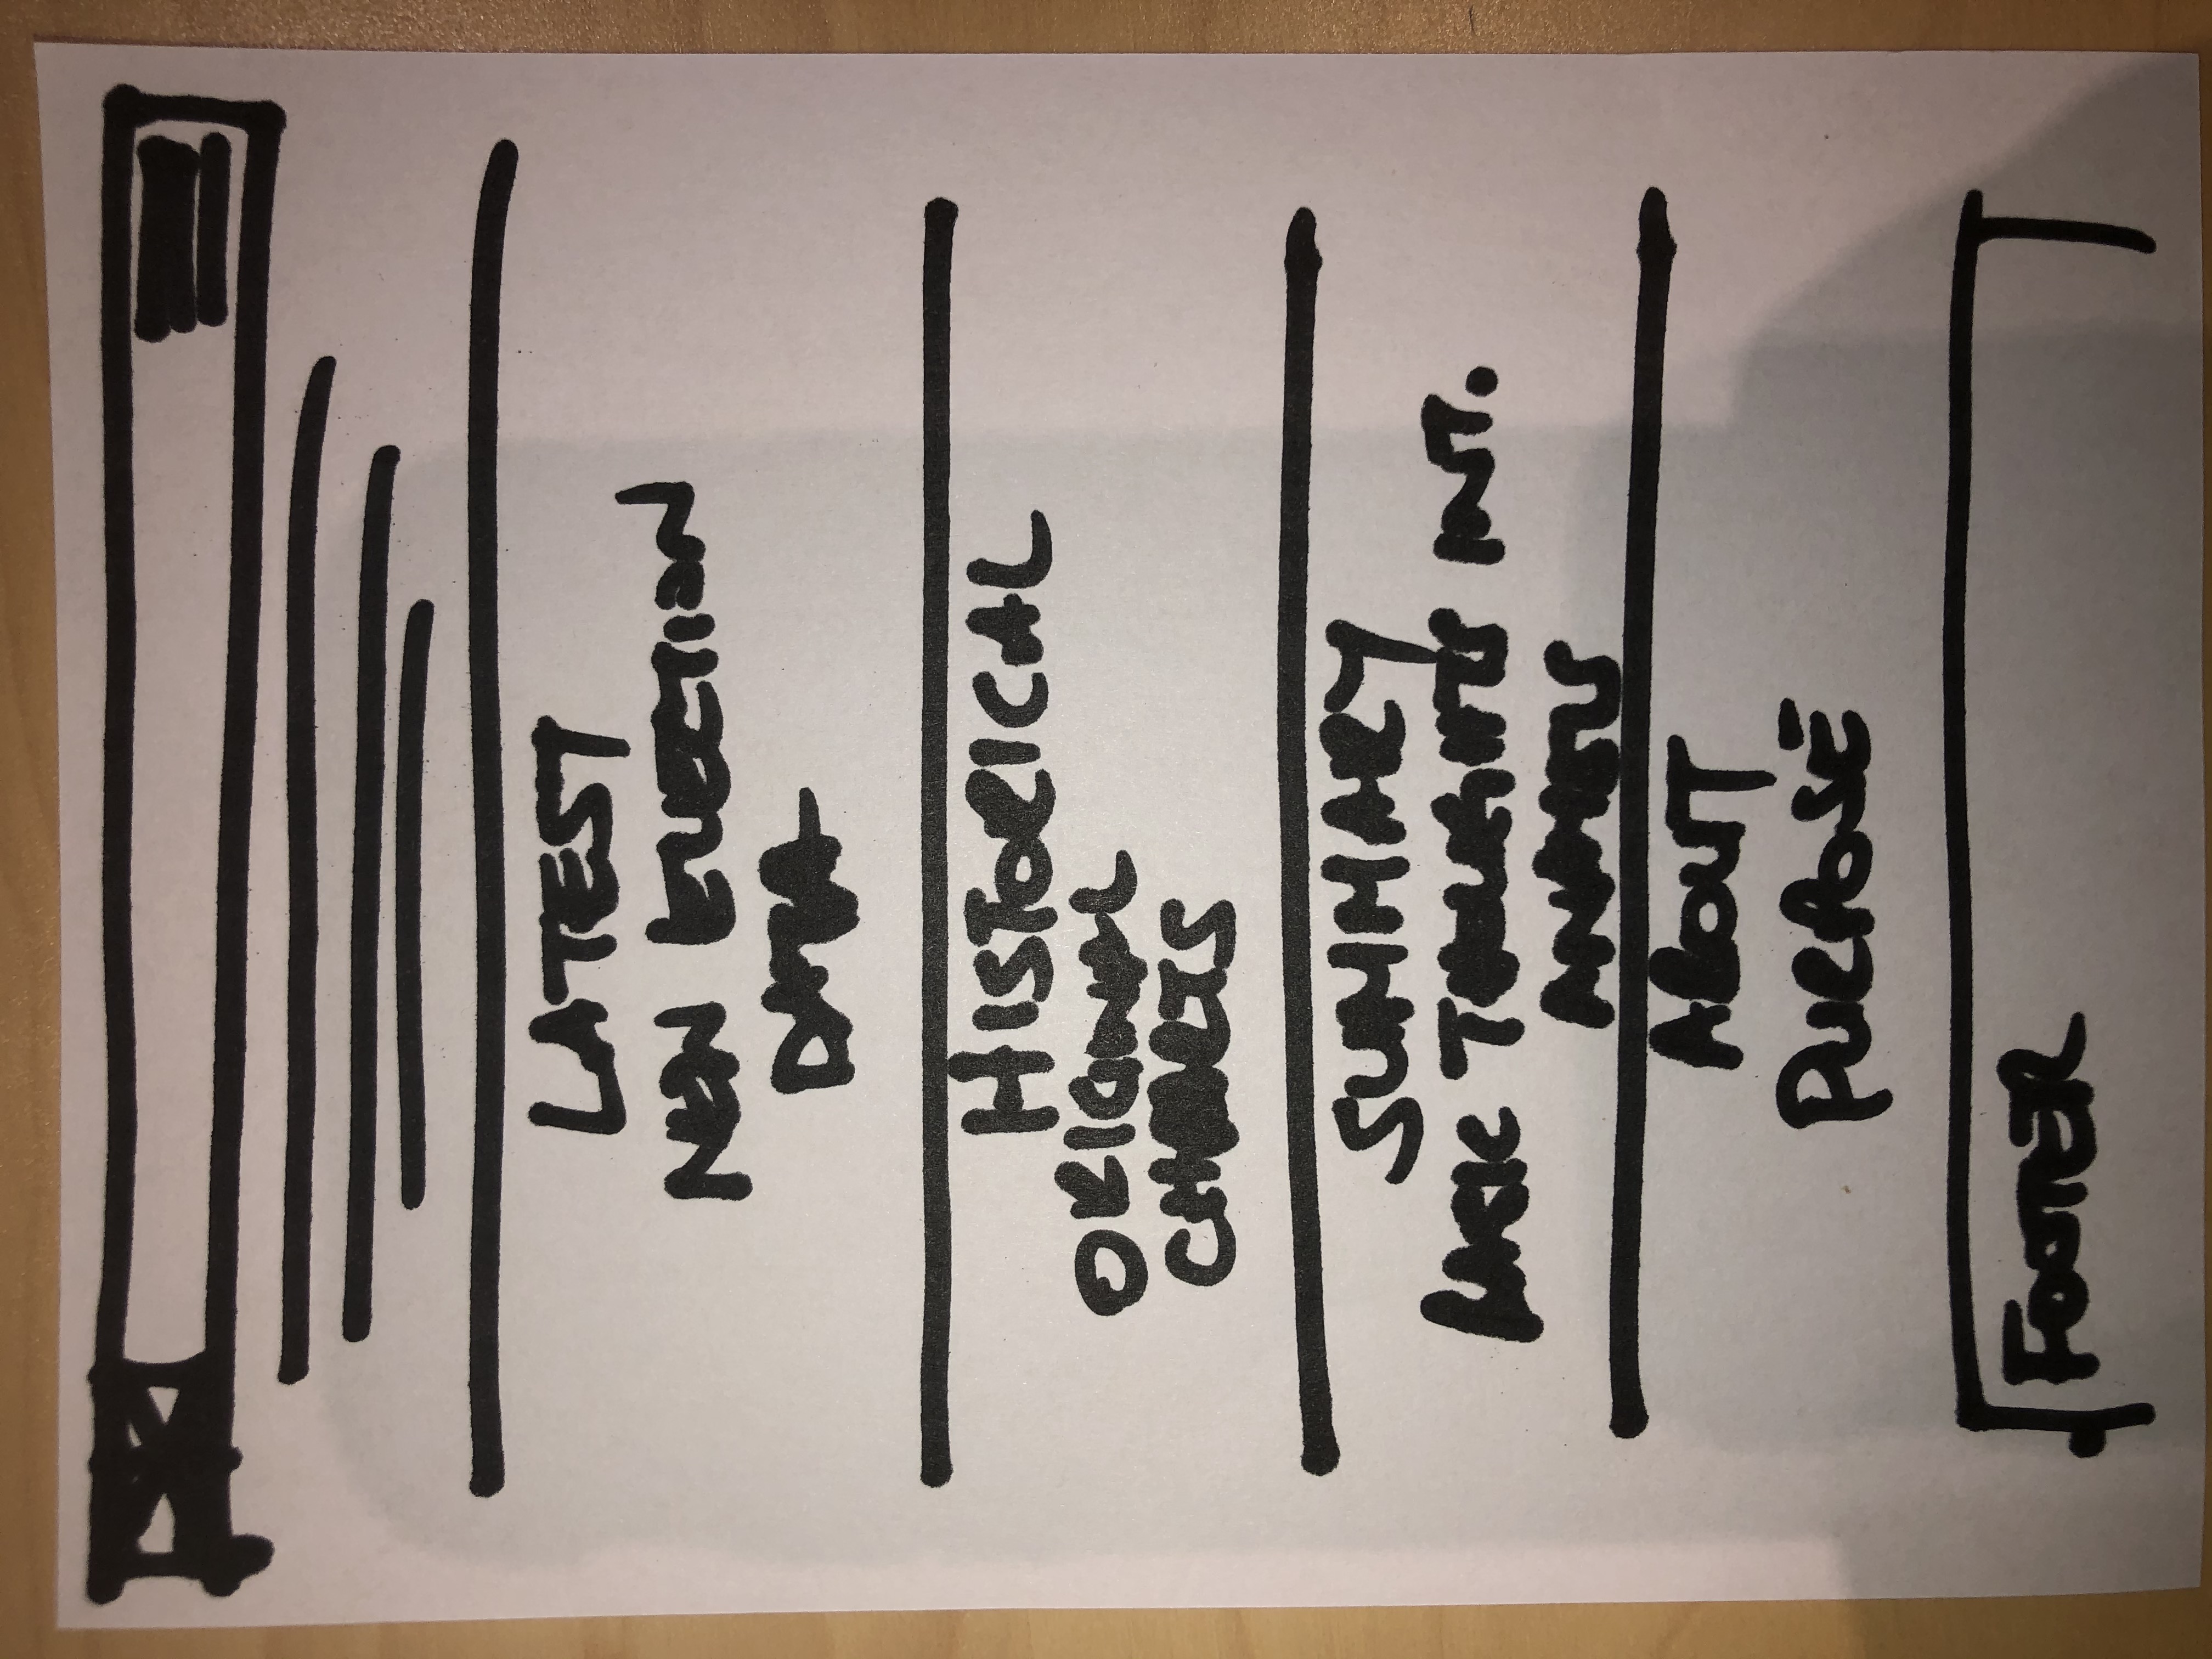 LATEST
NEW ELECTION
DATA
HISTORICAL
ORIGINAL
CHARTS
SUMMARY
BASIC THOUGHTS INT.
ABOUT
PURPOSE
FOOTER